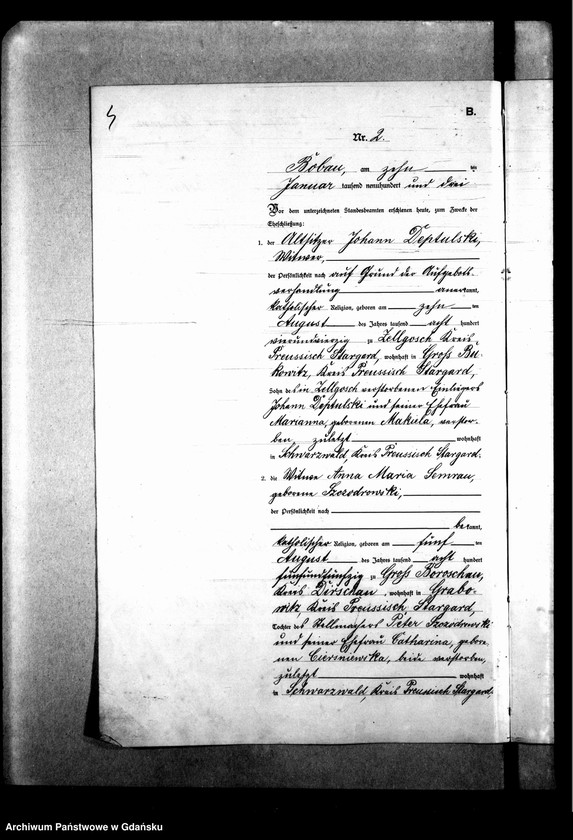 B.
Nr. 2.
Bobau, am zehn ten
Januar tausend neunhundert und drei
Vor dem unterzeichneten Standesbeamten erschienen heute, zum Zwecke der
Eheschließung:
1. der Altsitzer Johann Deptulski,
Witwer,
der Persönlichkeit nach auf Grund der Aufgebots-
verhandlung anerkannt,
katholischer Religion, geboren am zehn ten
August des Jahres tausend acht hundert
vierundvierzig zu Zellgosch Kreis
Preussisch Stargard, wohnhaft in Gross Bu-
kowitz, Kreis Preussisch Stargard,
Sohn des in Zellgosch verstorbenen Einliegers
Johann Deptulski und seiner Ehefrau
Marianna, geborenen Makula, verstor-
ben, zuletzt wohnhaft
in Schwarzwald, Kreis Preussisch Stargard.
2. die Witwe Anna Maria Semrau,
geborene Szczodrowski,
der Persönlichkeit nach
bekannt,
katholischer Religion, geboren am fünf ten
August des Jahres tausend acht hundert
fünfundfünfzig zu Gross Boroschau,
Kreis Dirschau, wohnhaft in Grabo-
witz, Kreis Preussisch Stargard,
Tochter des Stellmachers Peter Szczodrowski
und seiner Ehefrau Catharina, gebore-
nen Cierniewska, beide verstorben,
zuletzt wohnhaft
in Schwarzwald, Kreis Preussisch Stargard.
Archiwum Państwowe w Gdańsku